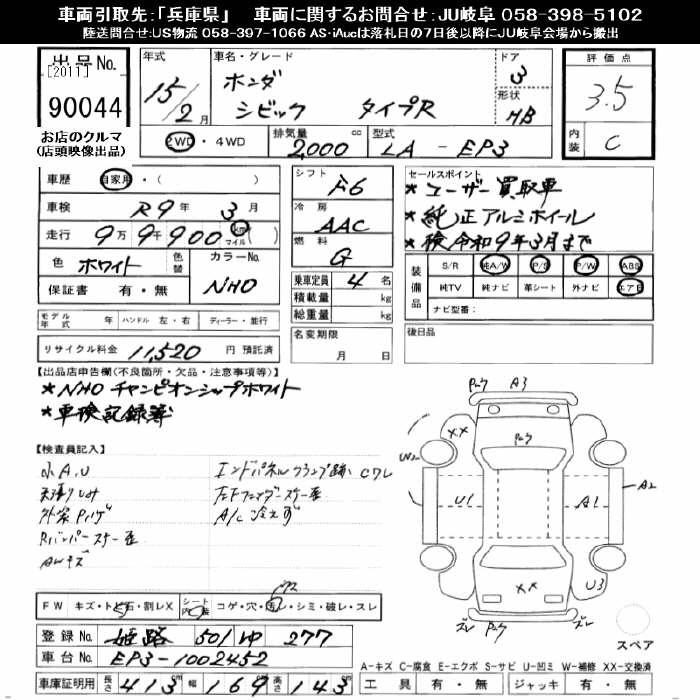 車両引取先:「兵庫県」　車両に関するお問合せ:JU岐阜 058-398-5102
陸送問合せ:US物流 058-397-1066 AS・iAucは落札日の7日後以降にJU岐阜会場から搬出
出品No.
[2011]
90044
お店のクルマ
(店頭映像出品)
年式
15/2月
車名・グレード
ホンダ
シビック タイプR
ドア
3
形状
HB
2WD・4WD
排気量
2,000 cc
型式
LA - EP3
評価点
3.5
内装
C
車歴 自家用・( )
車検 R9年 3月
走行 9万9千900 km マイル
色 ホワイト 色替
カラーNo.
NHO
保証書 有・無
シフト
F6
冷房
AAC
燃料
G
乗車定員 4名
積載量 kg
総重量 kg
セールスポイント
*ユーザー買取車
*純正アルミホイール
*検 令和9年3月まで
装備品
S/R 純A/W P/S P/W ABS
純TV 純ナビ 革シート 外ナビ エアB
ナビ型番:
モデル年式 年 ハンドル 左・右 ディーラー・並行
名変期限
月 日
後日品
リサイクル料金 11,520 円 預託済
【出品店申告欄(不良箇所・欠品・注意事項等)】
*NHO チャンピオンシップホワイト
*車検記録簿
【検査員記入】
小A.U
エンドパネルクランプ跡 Cワレ
天張りしみ
左Fフェンダーステー歪
外装Pハゲ
A/C 冷えず
Rバンパーステー歪
AWキズ
FW キズ・トビ石・割レX
シート内装 コゲ・穴・汚レ・シミ・破レ・スレ
登録No. 姫路 501 ゆ 277
車台No. EP3-1002452
車庫証明用 長さ 413cm 幅 169cm 高さ 143cm
Pハゲ A3
XX
Pハゲ
W2
U1
A1
A2
XX
U3
ズレ Pハゲ ズレ
スペア
A-キズ C-腐食 E-エクボ S-サビ U-凹ミ W-補修 XX-交換済
工具 有・無 ジャッキ 有・無